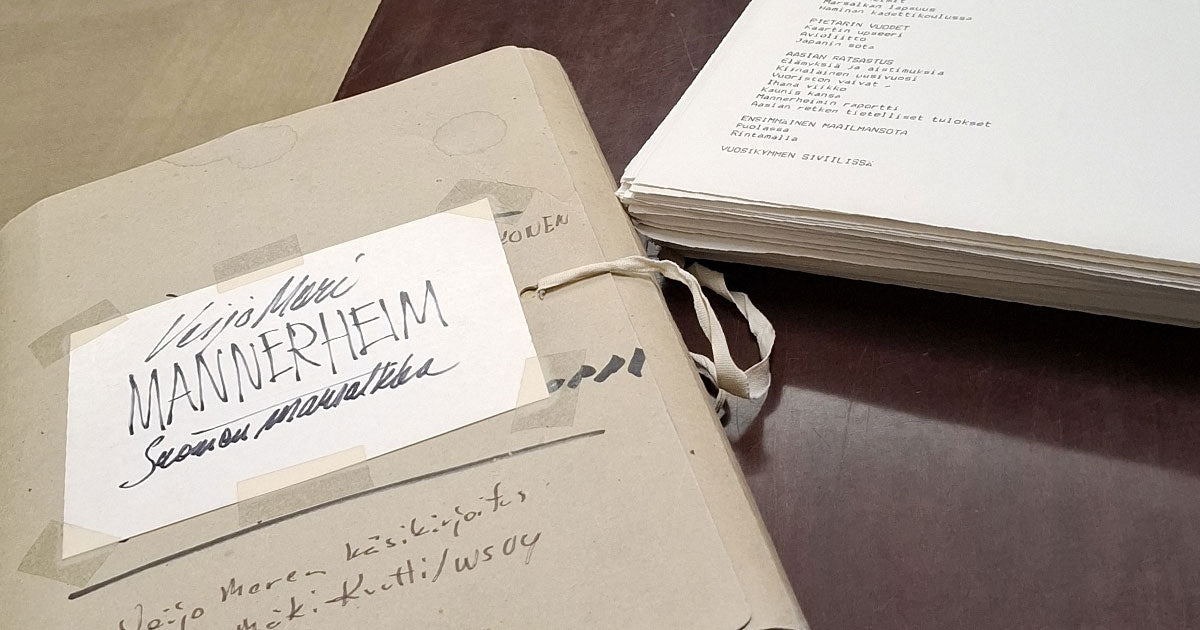 Veijo Meri
MANNERHEIM
Suomen marsalkka
ONEN
Veijo Meren käsikirjoitus
Mäki-Kutti/WSOY
Marsalkan lapsuus
Haminan kadettikoulussa
PIETARIN VUODET
Kaartin upseeri
Avioliitto
Japanin sota
AASIAN RATSASTUS
Elämyksiä ja aistimuksia
Kiinalainen uusivuosi
Vuoriston vaivat
Ihana viikko
Kaunis kansa
Mannerheimin raportti
Aasian retken tietelliset tulokset
ENSIMMÄINEN MAAILMANSOTA
Puolassa
Rintamalla
VUOSIKYMMEN SIVIILISSÄ